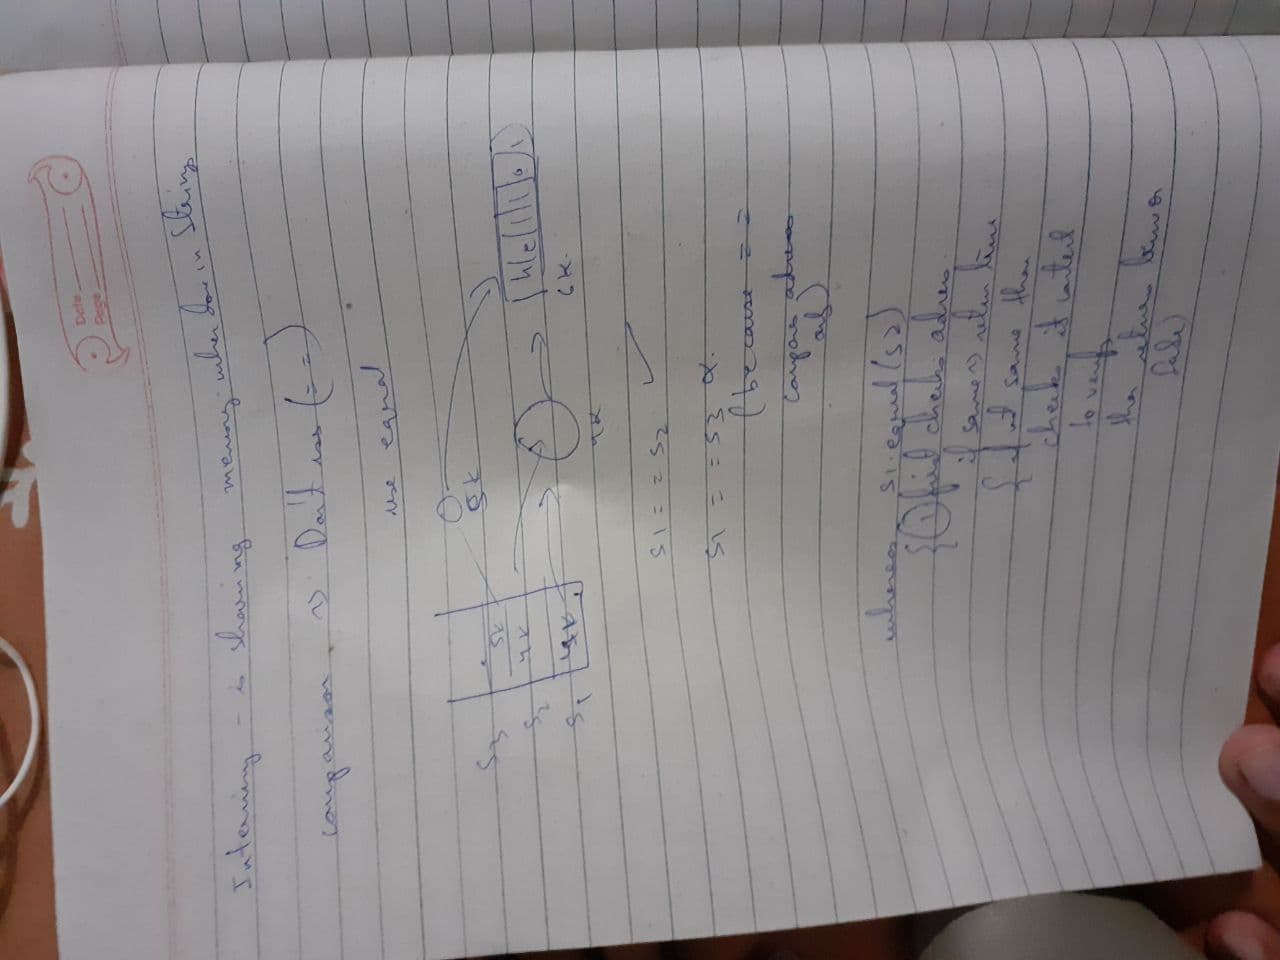 Date
Page
Interning - is sharing memory when done in String
comparison ~> Don't use (==)
use equal
5k
4k
6k.
|h|e|l|l|o|
S3 5k
S2 4k
S1 4k
S1 == S2 ✓
S1 == S3 x.
(because ==
compare adress
only)
whereas S1.equal(S2)
{(1) first checks adress
if same ~> return true
{if not same then
checks it content
to verify
then return true or
false)